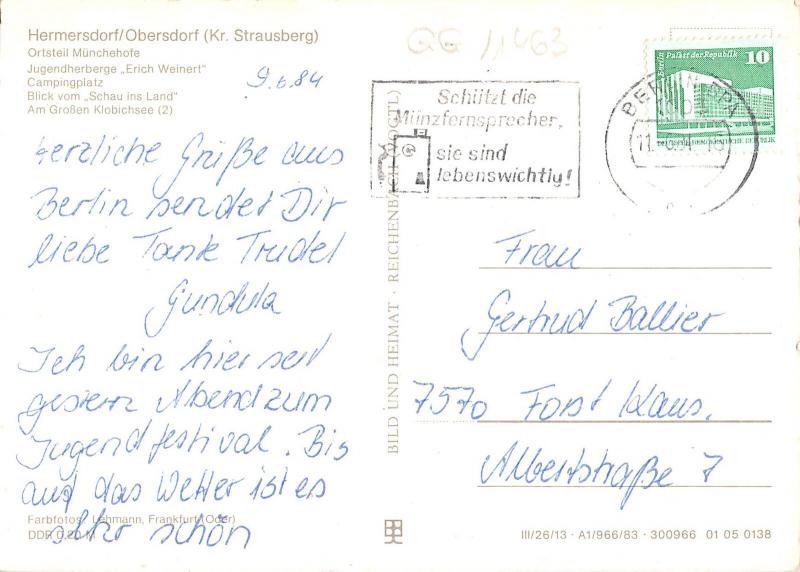 Hermersdorf/Obersdorf (Kr. Strausberg)
Ortsteil Münchehofe
Jugendherberge „Erich Weinert"
Campingplatz
Blick vom „Schau ins Land"
Am Großen Klobichsee (2)
9.6.84
Herzliche Grüße aus
Berlin sendet Dir
liebe Tante Trudel
Gundula
Ich bin hier seit
gestern Abend zum
Jugendfestival. Bis
auf das Wetter ist es
sehr schön
Farbfotos: Lehmann, Frankfurt (Oder)
DDR 0,20 M
BILD UND HEIMAT · REICHENBACH (VOGTL)
Schützt die
Münzfernsprecher,
sie sind
lebenswichtig!
BERLIN BPA
Berlin Palast der Republik
10
DEUTSCHE DEMOKRATISCHE REPUBLIK
Frau
Gertrud Ballier
7570 Forst Laus.
Albertstraße 7
III/26/13 · A1/966/83 · 300966 01 05 0138